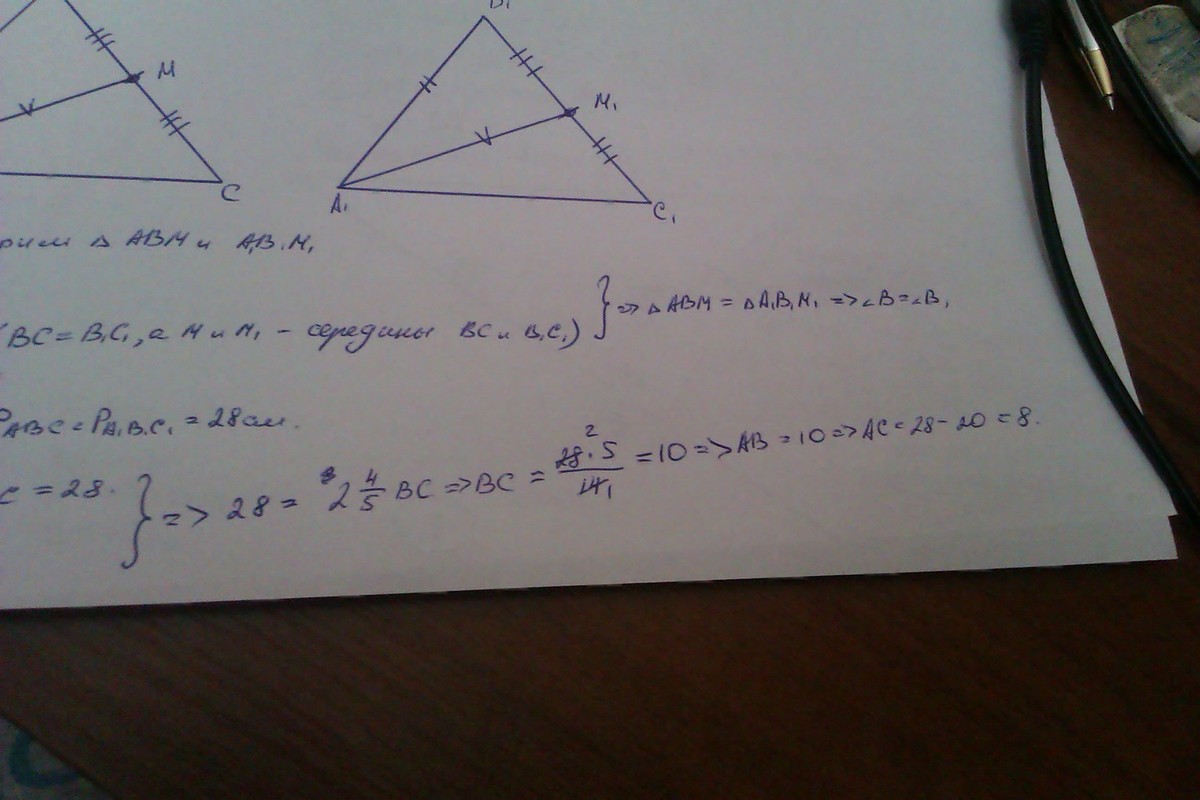 B₁
M
M₁
C
A₁
C₁
Δ ABM и A₁B₁M₁
(BC = B₁C₁, а M и M₁ - середины BC и B₁C₁) } => Δ ABM = Δ A₁B₁M₁ => ∠B = ∠B₁
PABC = PA₁B₁C₁ = 28 см.
C = 28. } => 28 = 2 4/5 BC => BC = 28·5/14 = 10 => AB = 10 => AC = 28 - 20 = 8.
2
1